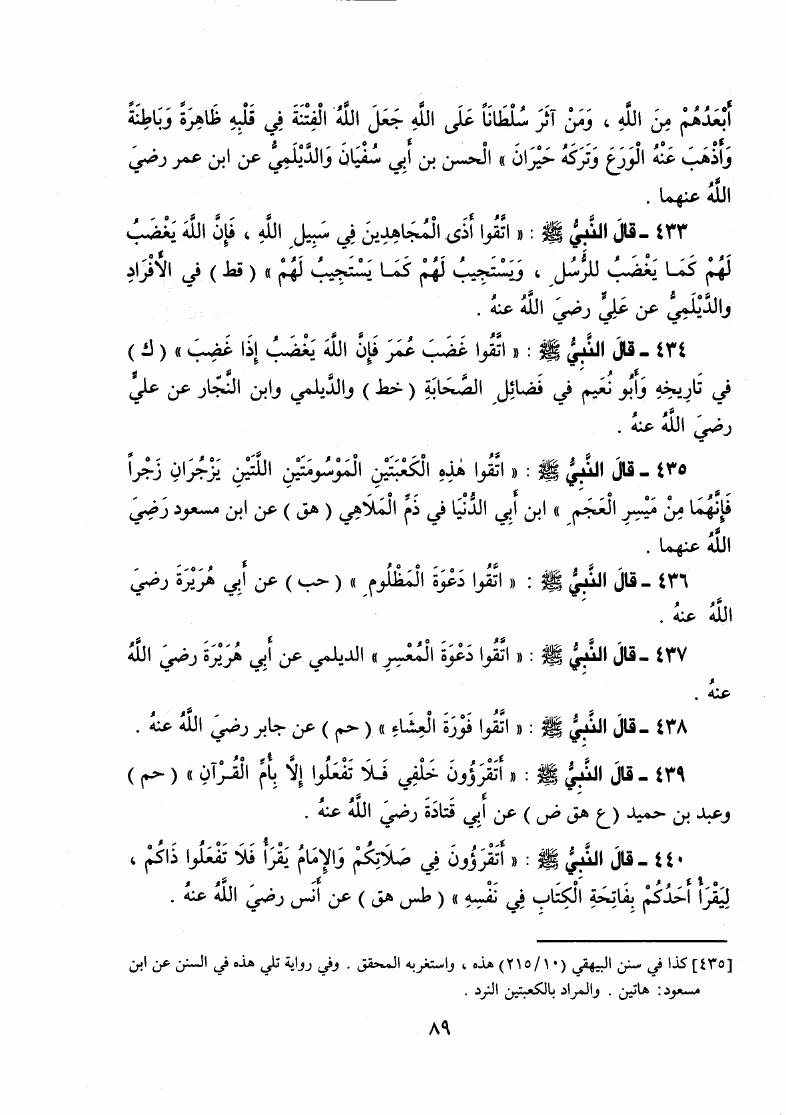 أَبْعَدُهُمْ مِنَ اللَّهِ ، وَمَنْ آثَرَ سُلْطَاناً عَلَى اللَّهِ جَعَلَ اللَّهُ الْفِتْنَةَ فِي قَلْبِهِ ظَاهِرَةً وَبَاطِنَةً
وَأَذْهَبَ عَنْهُ الْوَرَعَ وَتَرَكَهُ حَيْرَانَ » الْحسن بن أَبِي سُفْيَانَ وَالدَّيْلَمِيُّ عن ابن عمر رضيَ
اللَّهُ عنهما .
٤٣٣ ـ قالَ النَّبِيُّ ﷺ : « اتَّقُوا أَذَى الْمُجَاهِدِينَ فِي سَبِيلِ اللَّهِ ، فَإِنَّ اللَّهَ يَغْضَبُ
لَهُمْ كَمَا يَغْضَبُ لِلرُّسُلِ ، وَيَسْتَجِيبُ لَهُمْ كَمَا يَسْتَجِيبُ لَهُمْ » ( قط ) في الأَفْرَادِ
والدَّيْلَمِيُّ عن عَلِيٍّ رضيَ اللَّهُ عنهُ .
٤٣٤ ـ قالَ النَّبِيُّ ﷺ : « اتَّقُوا غَضَبَ عُمَرَ فَإِنَّ اللَّهَ يَغْضَبُ إِذَا غَضِبَ » ( ك )
في تَارِيخِهِ وَأَبُو نُعَيمٍ في فَضائلِ الصَّحَابَةِ ( خط ) والدَّيلمي وابن النَّجّار عن عليٍّ
رضيَ اللَّهُ عنهُ .
٤٣٥ ـ قالَ النَّبِيُّ ﷺ : « اتَّقُوا هٰذِهِ الْكَعْبَتَيْنِ الْمَوْسُومَتَيْنِ اللَّتَيْنِ يَزْجُرَانِ زَجْراً
فَإِنَّهُمَا مِنْ مَيْسِرِ الْعَجَمِ » ابن أَبي الدُّنْيَا في ذَمِّ الْمَلَاهِي ( هق ) عن ابن مسعود رَضِيَ
اللَّهُ عنهما .
٤٣٦ ـ قالَ النَّبِيُّ ﷺ : « اتَّقُوا دَعْوَةَ الْمَظْلُومِ » ( حب ) عن أَبِي هُرَيْرَةَ رضيَ
اللَّهُ عنهُ .
٤٣٧ ـ قالَ النَّبِيُّ ﷺ : « اتَّقُوا دَعْوَةَ الْمُعْسِرِ » الديلمي عن أَبي هُرَيْرَةَ رضيَ اللَّهُ
عنهُ .
٤٣٨ ـ قالَ النَّبِيُّ ﷺ : « اتَّقُوا فَوْرَةَ الْعِشَاءِ » ( حم ) عن جابر رضيَ اللَّهُ عنهُ .
٤٣٩ ـ قالَ النَّبِيُّ ﷺ : « أَتَقْرَؤُونَ خَلْفِي فَلا تَفْعَلُوا إِلَّا بِأُمِّ الْقُرْآنِ » ( حم )
وعبد بن حميد ( ع هق ض ) عن أَبِي قَتَادَةَ رضيَ اللَّهُ عنهُ .
٤٤٠ ـ قالَ النَّبِيُّ ﷺ : « أَتَقْرَؤُونَ فِي صَلَاتِكُمْ وَالإِمَامُ يَقْرَأُ فَلَا تَفْعَلُوا ذَاكُمْ ،
لِيَقْرَأْ أَحَدُكُمْ بِفَاتِحَةِ الْكِتَابِ فِي نَفْسِهِ » ( طس هق ) عن أَنَس رضيَ اللَّهُ عنهُ .
[٤٣٥] كذا في سنن البيهقي (٢١٥/١٠) هذه ، واستغربه المحقق . وفي رواية تلي هذه في السنن عن ابن
مسعود: هاتين . والمراد بالكعبتين النرد .
٨٩